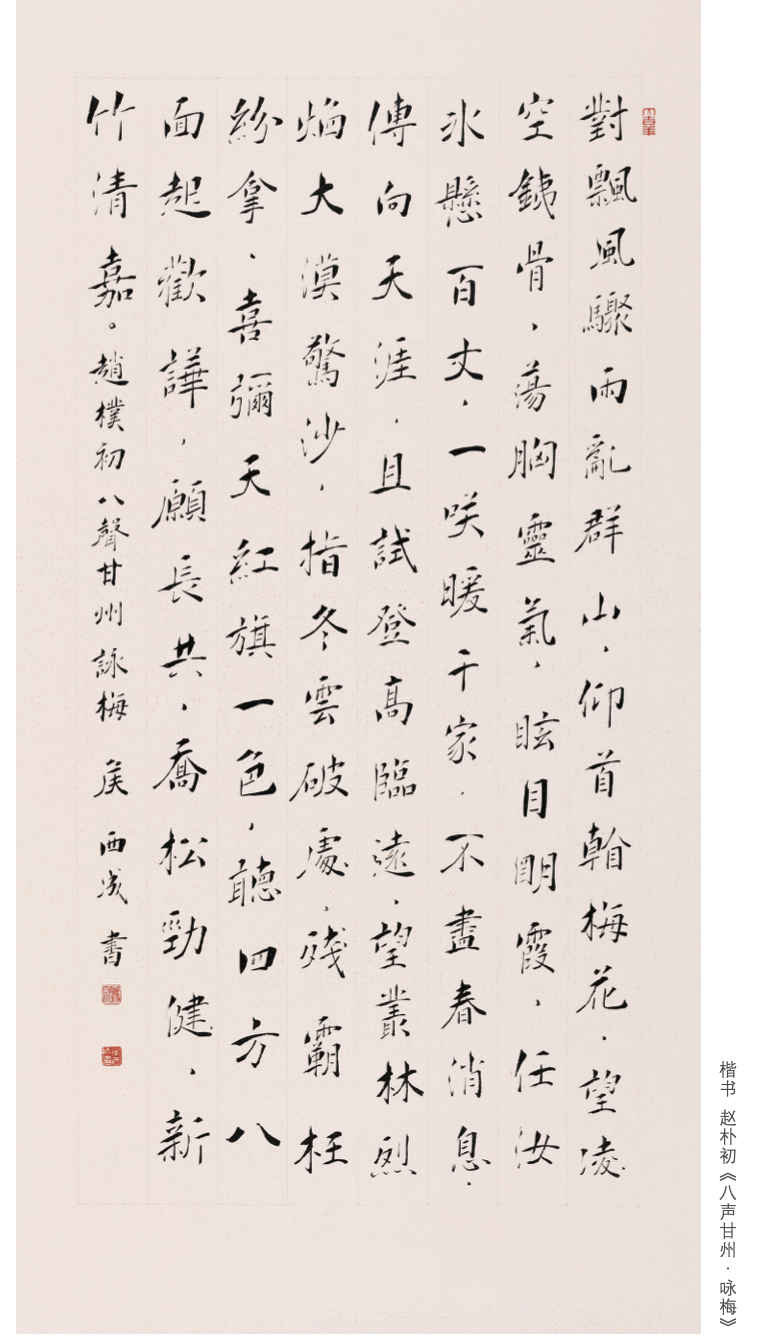 對飄風驟雨亂群山，仰首翰梅花，望淩
空鐵骨，蕩胸靈氣，眩目朙霞，任汝
冰懸百丈，一咲暖千家，不盡春消息，
傳向天涯，且試登高臨遠，望叢林烈
焰大漠驚沙，指冬雲破處，殘霸枉
紛拏，喜彌天紅旗一色，聽四方八
面起歡譁，願長共，喬松勁健，新
竹清嘉。趙樸初八聲甘州詠梅 侯西成書
楷书 赵朴初《八声甘州·咏梅》